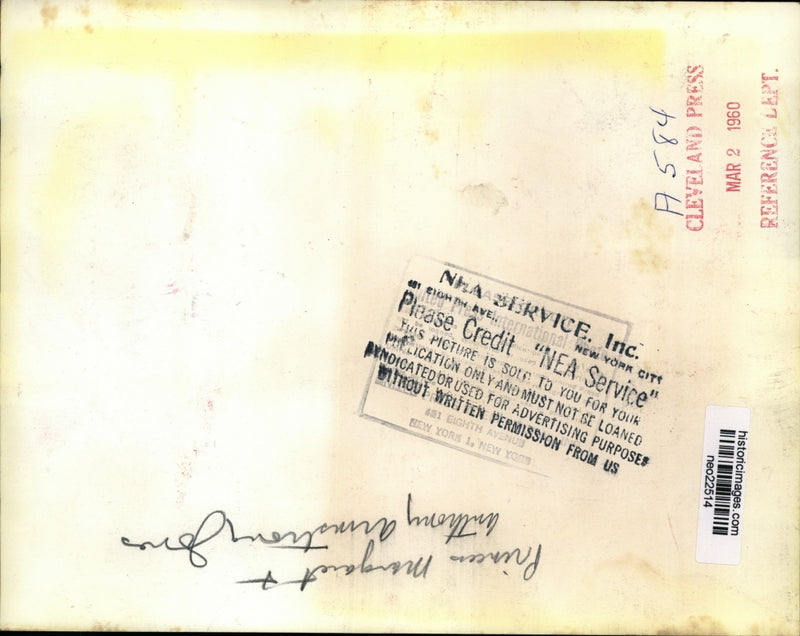 A 584
CLEVELAND PRESS
MAR 2 1960
REFERENCE DEPT.
NEA SERVICE, Inc.
461 EIGHTH AVE. NEW YORK CITY
Please Credit "NEA Service"
THIS PICTURE IS SOLD TO YOU FOR YOUR
PUBLICATION ONLY AND MUST NOT BE LOANED
SYNDICATED OR USED FOR ADVERTISING PURPOSES
WITHOUT WRITTEN PERMISSION FROM US
International
461 EIGHTH AVENUE
NEW YORK 1, NEW YORK
historicimages.com
neo22514
Princess Margaret +
Anthony Armstrong Jones